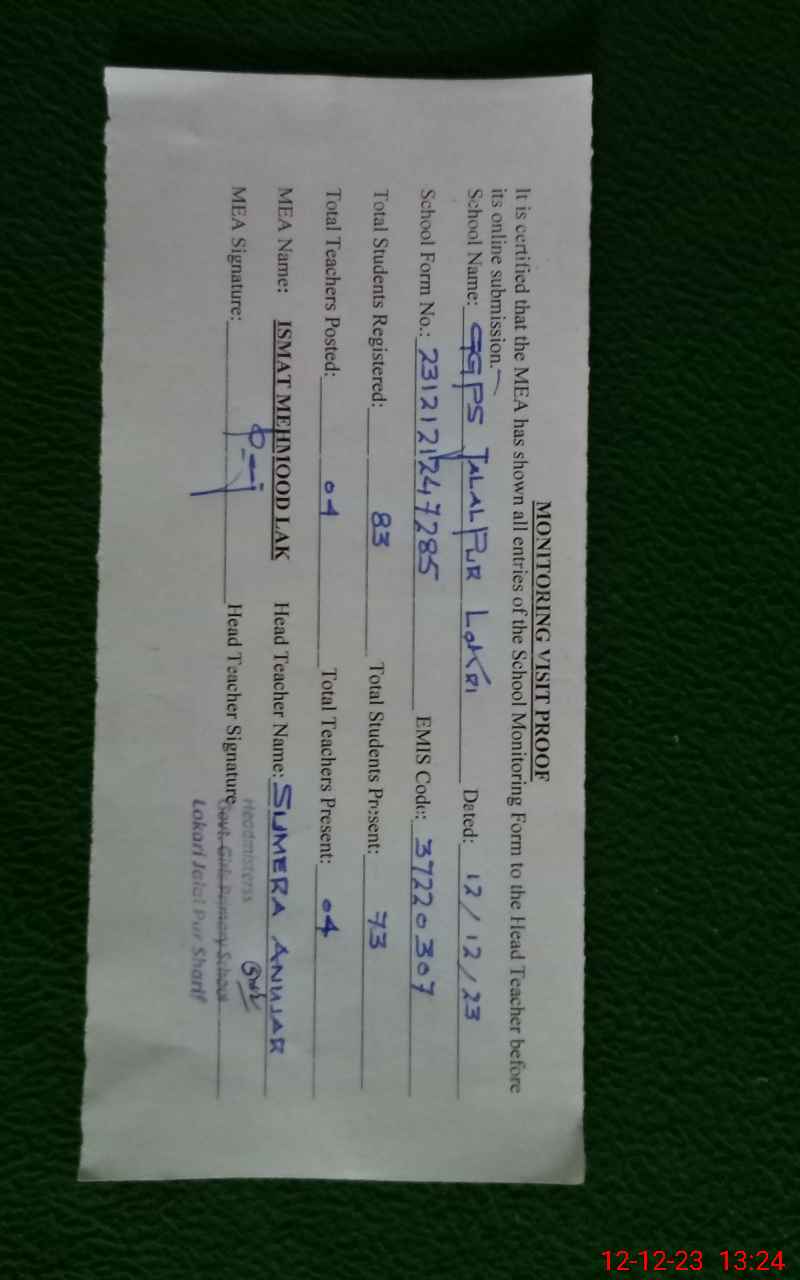 MONITORING VISIT PROOF
It is certified that the MEA has shown all entries of the School Monitoring Form to the Head Teacher before
its online submission.
School Name: GGPS JALAL PUR LOKRI Dated: 12/12/23
School Form No.: 2312121247285 EMIS Code: 37220307
Total Students Registered: 83 Total Students Present: 73
Total Teachers Posted: 04 Total Teachers Present: 04
MEA Name: ISMAT MEHMOOD LAK Head Teacher Name: SUMERA ANUJAR
MEA Signature: Head Teacher Signature
Headmisterss
Govt. Girls Primary School
Lokari Jalal Pur Sharif
12-12-23 13:24